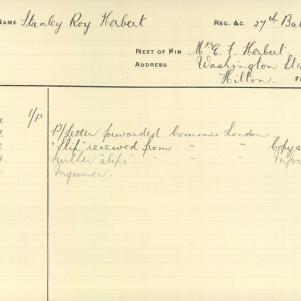 NAME Stanley Roy Herbert REG. &C. 27th Bat
NEXT OF KIN Mr E. F. Herbert
ADDRESS Washington St
Hilton.
1/P P/Letter forwarded Comms London
"Slip" received from " " Copy
Further "slip" " " "
Inquirer.